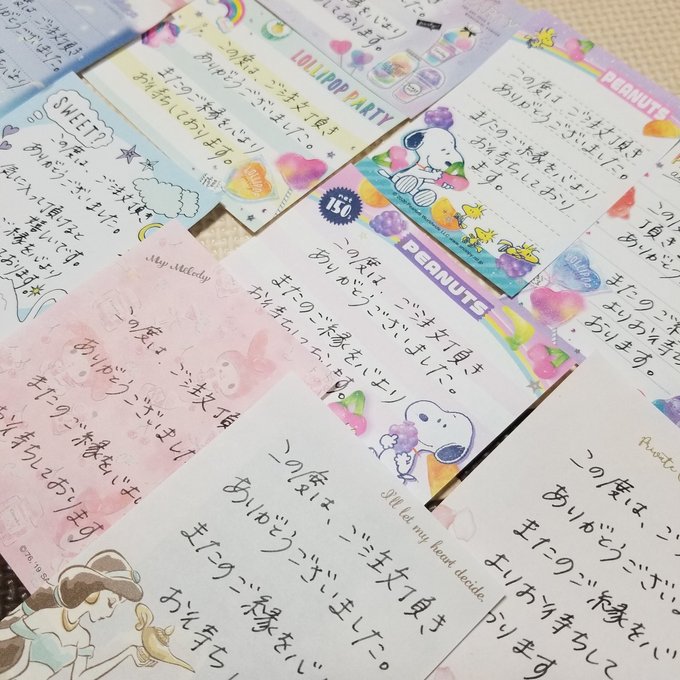 LOLLIPOP PARTY
この度は、ご注文頂き
ありがとうございました。
またのご縁を心より
お待ちしております。
PEANUTS
この度は、ご注文頂き
ありがとうございました。
またのご縁を心より
お待ちしており
ます。
SWEET
この度は、ご注文頂き
ありがとうございました。
気に入って頂けると
嬉しいです。
ご縁を心より
おります
この度
頂き
ありがとう
またのご
よりお待ち
おります。
net 150
PEANUTS
この度は、ご注文頂き
ありがとうございました。
またのご縁を心より
お待ちして
My Melody
この度は、ご注文頂き
ありがとうございました
またのご縁を心より
お待ちしております
©'76,'19
I'll let my heart decide.
この度は、ご注文頂き
ありがとうございました。
またのご縁を心
お待ちしており
Private
この度は、ご
ありがとうござい
またのご縁を
よりお待ちして
おります